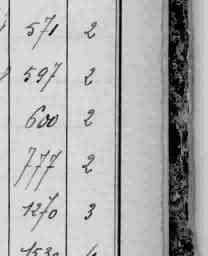 571 2
597 2
600 2
777 2
1270 3